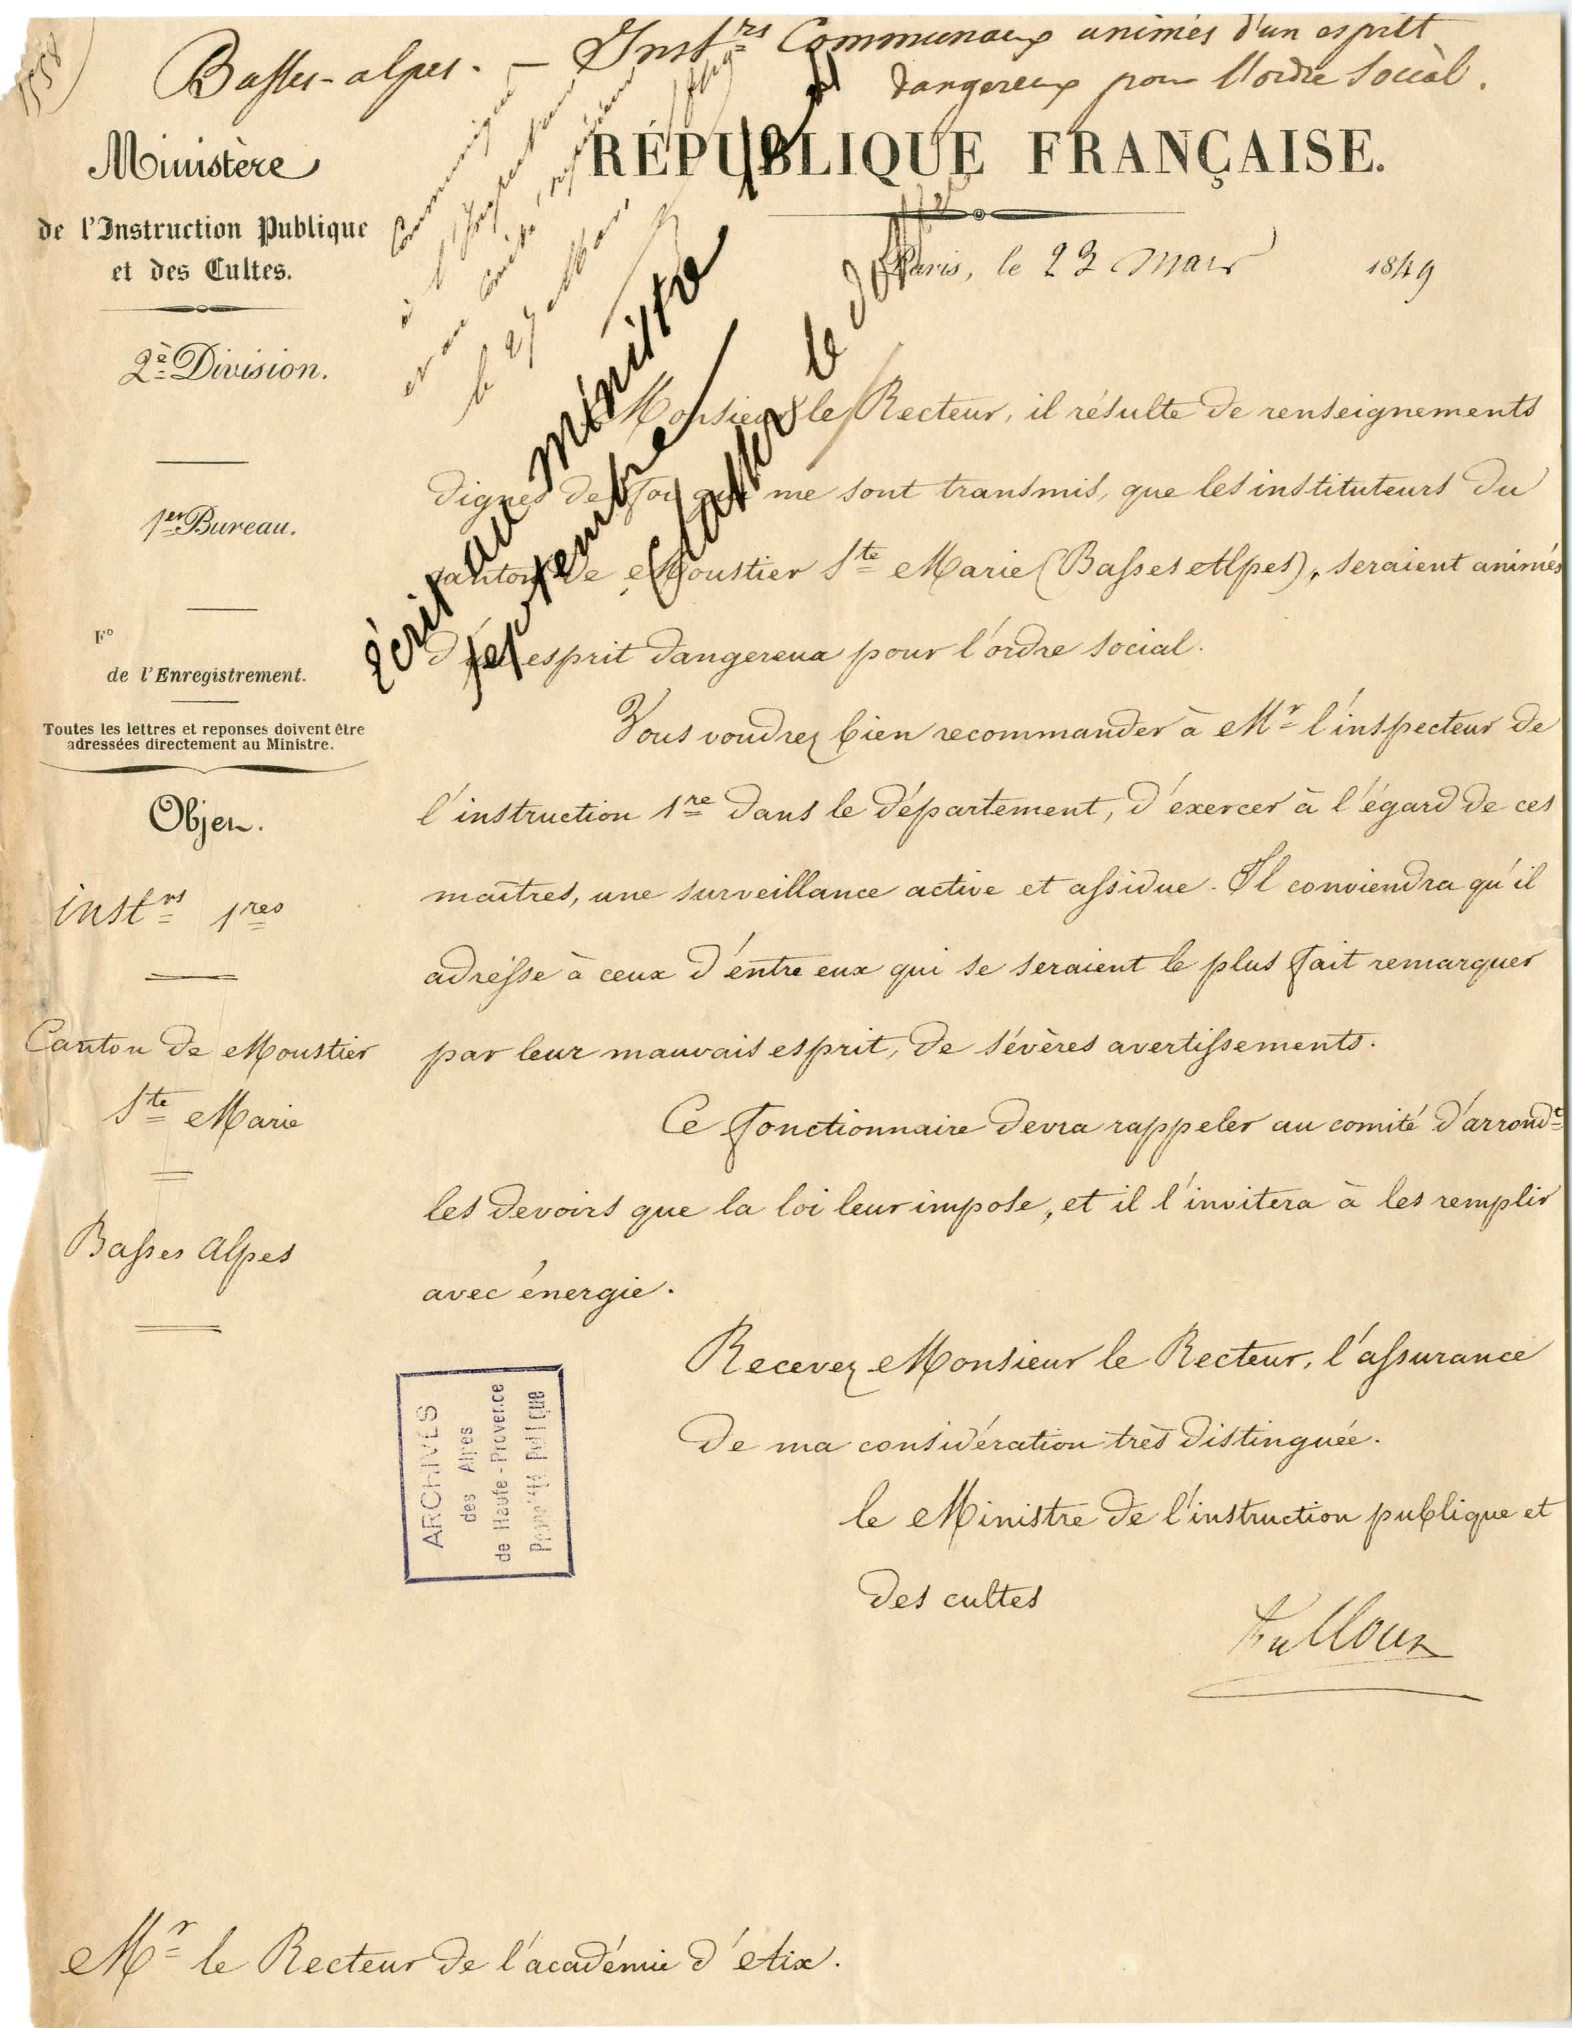 Basses-alpes. — Inst.rs Communaux animés d'un esprit
dangereux pour l'ordre Social.
Ministère
de l'Instruction Publique
et des Cultes.
2e Division.
1er Bureau.
F°
de l'Enregistrement.
Toutes les lettres et reponses doivent être
adressées directement au Ministre.
Objet.
inst.rs 1res
Canton de Moustier
Ste Marie
Basses Alpes
RÉPUBLIQUE FRANÇAISE.
Paris, le 23 Mars 1849
Communiqué
à l'Inspecteur
et au comité supérieur
le 27 Mars
écrit au ministre le
septembre
Classer le dossier
Monsieur le Recteur, il résulte de renseignements
dignes de foi qui me sont transmis, que les instituteurs du
canton de Moustier Ste Marie (Basses Alpes), seraient animés
d'un esprit dangereux pour l'ordre social.
Vous voudrez bien recommander à Mr l'inspecteur de
l'instruction 1re dans le département, d'exercer à l'égard de ces
maîtres, une surveillance active et assidue. Il conviendra qu'il
adresse à ceux d'entre eux qui se seraient le plus fait remarquer
par leur mauvais esprit, de sévères avertissements.
Ce fonctionnaire devra rappeler au comité d'arrondt
les devoirs que la loi leur impose, et il l'invitera à les remplir
avec énergie.
Recevez Monsieur le Recteur, l'assurance
de ma considération très distinguée.
le Ministre de l'instruction publique et
des cultes
Falloux
ARCHIVES
des Alpes
de Haute-Provence
Propriété publique
Mr le Recteur de l'académie d'Aix.